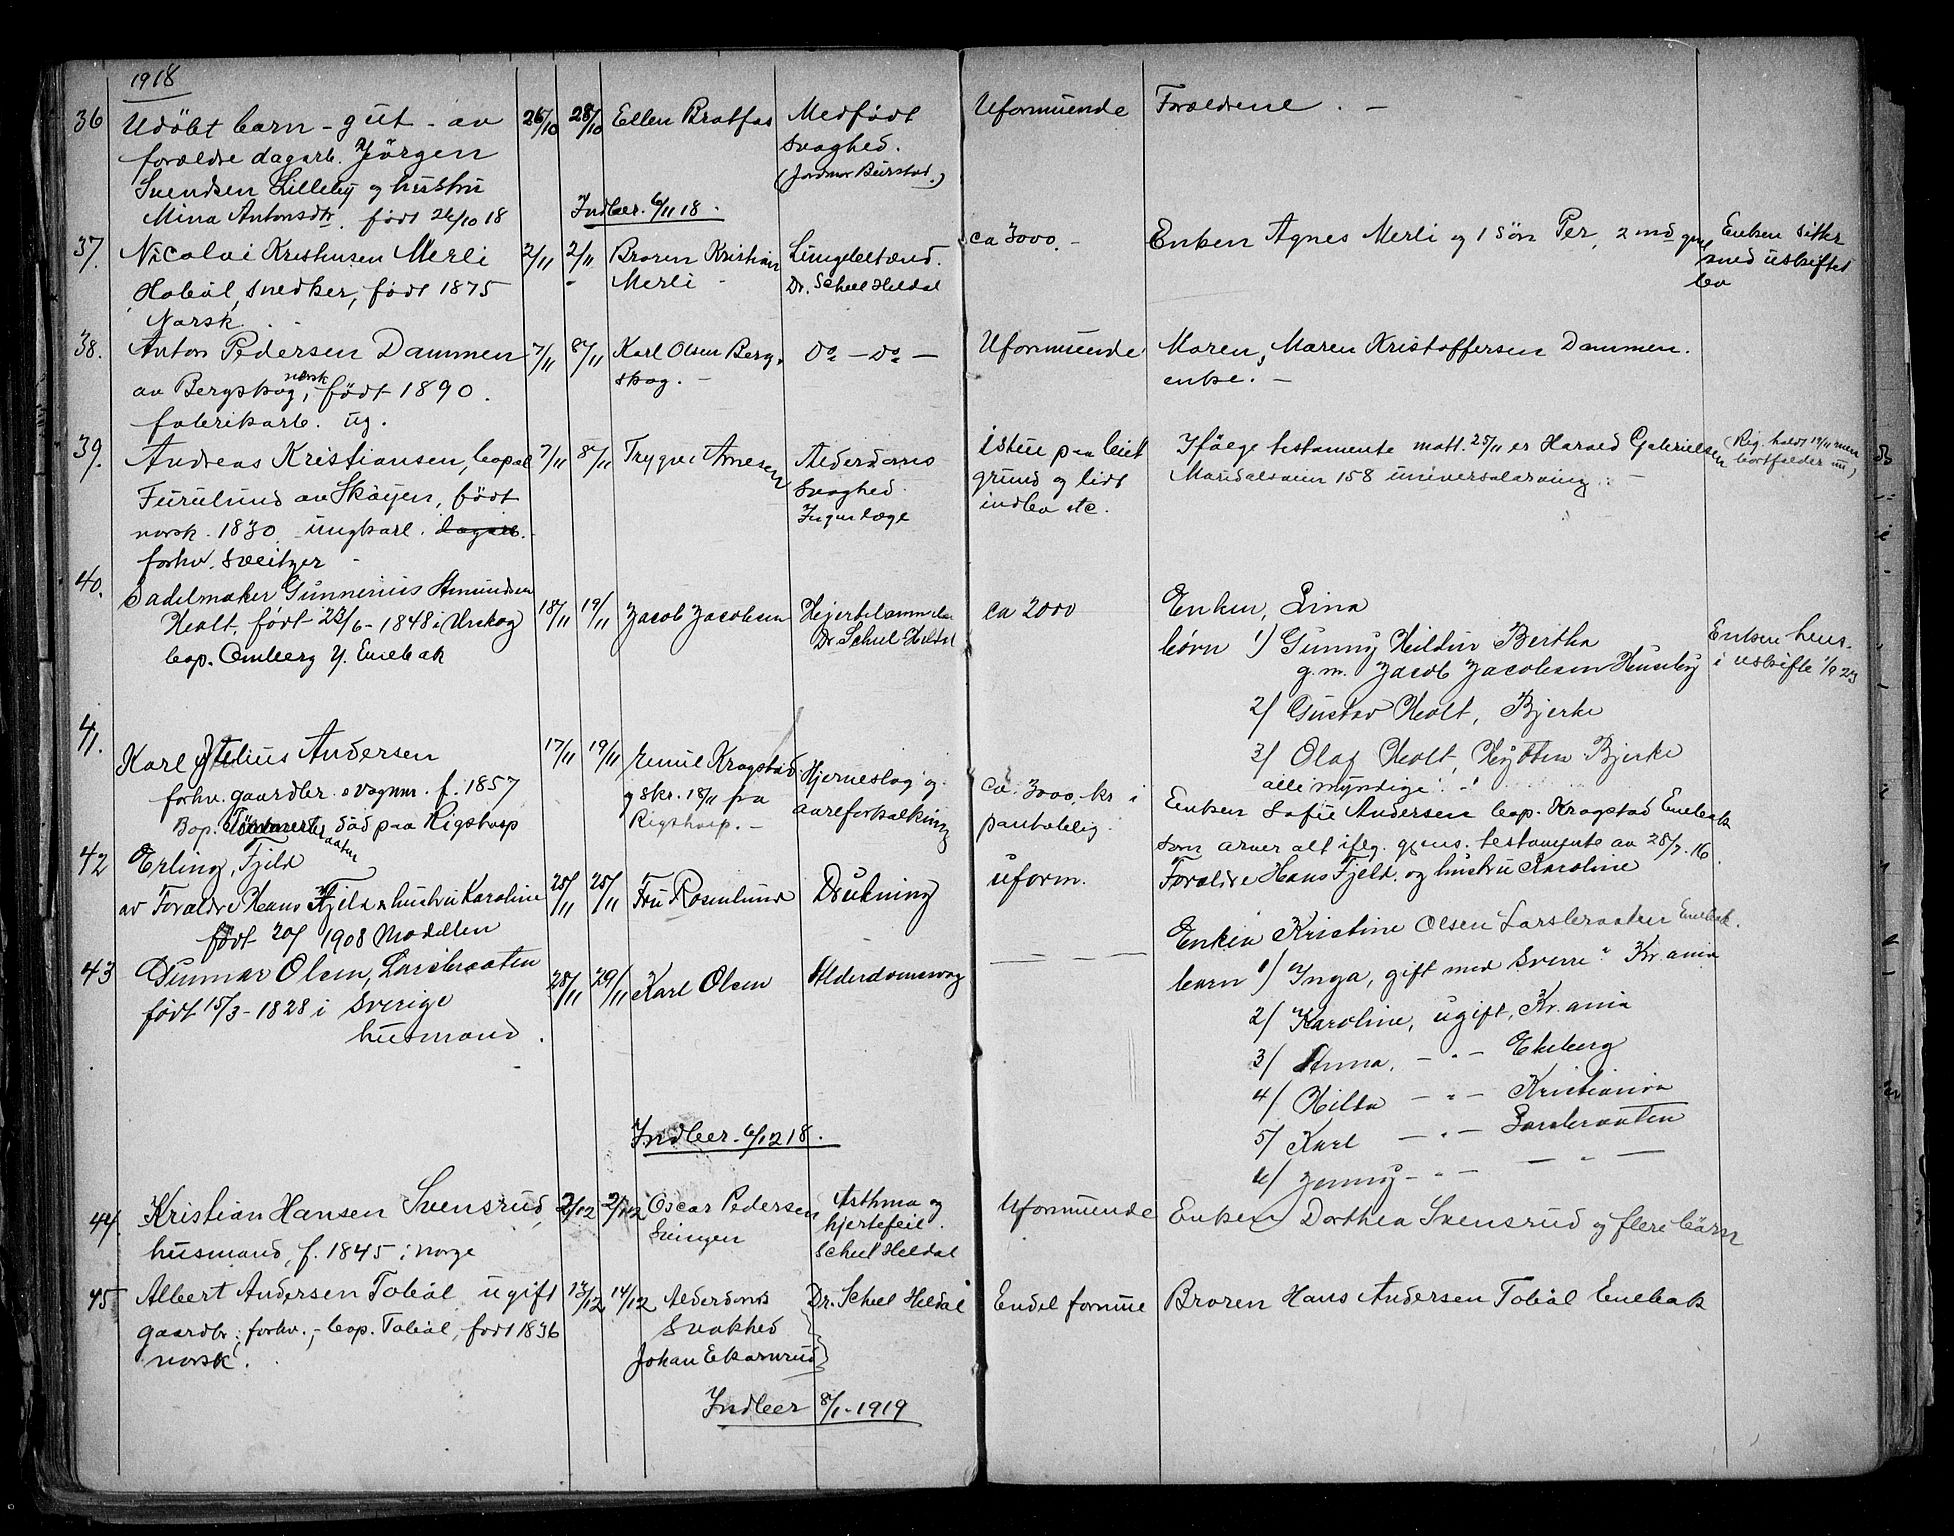 1918
36 Udöbt barn - gut - av 26/10 28/10 Ellen Bratfos Medfödt Uformuende Forældrene. -
forældre dagarb. Jörgen svaghed.
Svendsen Lilleby og hustru (Jordmor Burstad.)
Mina Antonsdtr. født 26/10 18 Indber. 6/11 18.
37. Nicolai Kristiansen Merli 2/11 2/11 Broren Kristian Lungebetænd. ca 3000. - Enken Agnes Merli og 1 sön Per, 2 Enken sitter
Haböl, snedker, födt 1875 Merli - Dr. Scheel Heldal med uskiftet
Norsk bo
38. Anton Pedersen Dammen 7/11 8/11 Karl Olsen Berg- Do - Do - Uformuende Moren, Maren Kristoffersen Dammen.
av Bergskog, norsk, födt 1890. skog. - enke. -
fabrikarb. ug.
39. Andreas Kristiansen, bopæl 7/11 8/11 Trygve Arnesen Alderdoms 1 stue paa leiet Ifölge testamente mott. 25/11 er Harald Gabrielsen (Reg. holdt 19/11 men
Furulund av Skøyen, födt svaghed. grund og lidt Maridalsveien 158 universalarving. - bortfalder nu)
norsk. 1830 ungkarl. dagarb. Ingen læge indbo etc.
forhv. sveitzer -
40. Sadelmaker Gunnerius Amundsen
Holt, födt 23/6 - 1848 i Urskog 18/11 19/11 Jacob Jacobsen Hjertelammelse ca 2000 Enken, Lina
bop. Omberg Y. Enebak Dr. Scheel Heldal börn 1) Gunny Hildur Bertha Enken hens.
g.m. Jacob Jacobsen Huseby i uskifte 1/9 23
2) Gustav Holt, Bjerke
3) Olaf Holt, Hytten Bjerke
alle myndige. -
41. Karl Andersen 17/11 19/11 Emil Kragstad Hjerneslag og ca. 3000 kr i Enken Sofie Andersen bop. Kragstad Enebak
forhv. gaardbr. o vognm. f. 1857 og skr. 18/11 fra aareforkalkning pantoblig. som arver alt iflg. gjens. testamente av 28/7. 16.
Bop. död paa Rigshosp Rigshosp. -
42 Erling Fjeld 25/11 25/11 Fru Rosenlund Drukning uform. Forældre Hans Fjeld og hustru Karoline
av Forældre Hans Fjeld & hustru Karoline
født 20/ 1908 Modellen
43 Gunnar Olsen, Larsbraaten 28/11 29/11 Karl Olsen Alderdomssvag - - - Enken Kristine Olsen Larsbraaten Enebak.
født 15/3 - 1828 i Sverige barn 1) Inga, gift med Sverre Kr.ania
husmand. 2) Karoline, ugift, Kr.ania
3) Anna, - " - Ekeberg
4) Hilda - " - Kristiania
5) Karl - " - Larsbraaten
6) Jenny - " - - " -
Indber. 6/12 18.
44. Kristian Hansen Svensrud, 2/12 2/12 Oscar Pedersen Asthma og Uformuende Enken Dorthea Svensrud og flere börn
husmand, f. 1845 i norge Svingen hjertefeil.
Scheel Heldal
45 Albert Andersen Toböl ugift 13/12 14/12 Alderdoms Dr. Scheel Heldal Endel formue Broren Hans Andersen Toböl Enebak
gaardbr. forhv. - bop. Toböl, födt 1836 svakhed
norsk. Johan Ekornrud
Indber 8/1 - 1919